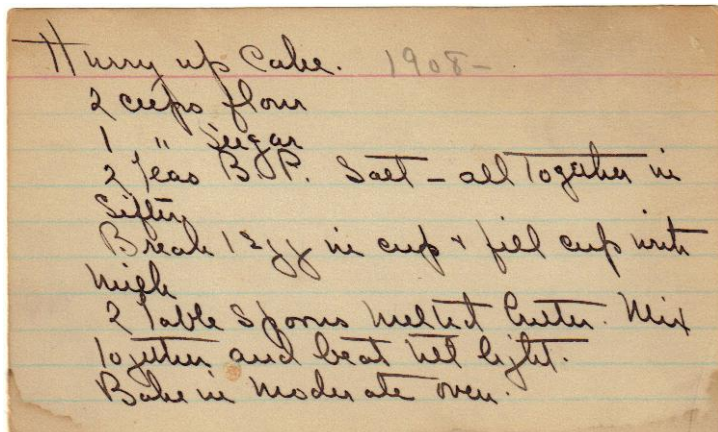 Hurry up Cake. 1908-
2 cups flour
1 " Sugar
2 teas B.P. Salt - all Together in
Sifter
Break 1 Egg in cup + fill cup with
milk
2 Table Spoons melted butter. Mix
together and beat till light.
Bake in moderate oven.